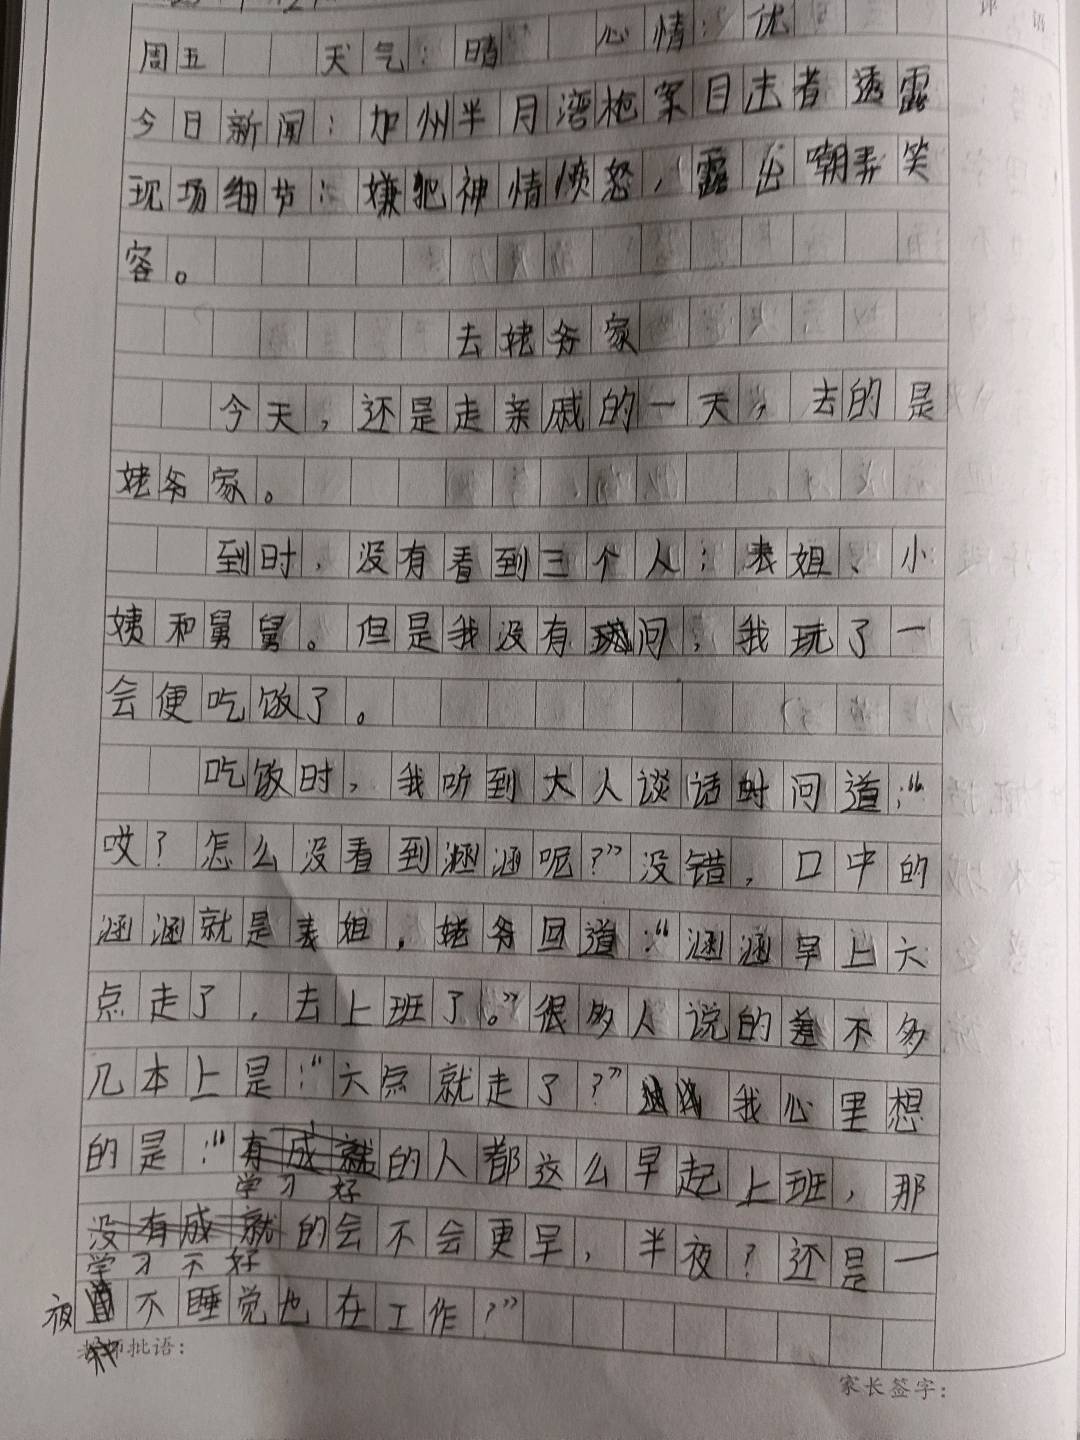 周五 天气：晴 心情：优
今日新闻：加州半月湾枪案目击者透露
现场细节：嫌犯神情愤怒，露出嘲弄笑
容。
去姥爷家
今天，还是走亲戚的一天，去的是
姥爷家。
到时，没有看到三个人：表姐、小
姨和舅舅。但是我没有问，我玩了一
会便吃饭了。
吃饭时，我听到大人谈话时问道：“
哎？怎么没看到涵涵呢？”没错，口中的
涵涵就是表姐，姥爷回道：“涵涵早上六
点走了，去上班了。”很多人说的差不多
几本上是：“六点就走了？”我心里想
的是：“有成就的人都这么早起上班，那
学习好
没有成就的会不会更早，半夜？还是一
学习不好
夜不睡觉也在工作？”
老师批语：
家长签字：